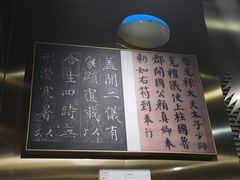 告光祿大夫太子少師
充禮儀使上柱國魯
郡開國公顏真卿奉
勅如右符到奉行
蓋聞二儀有
像顯覆載以
含生四時無
形潛寒暑以